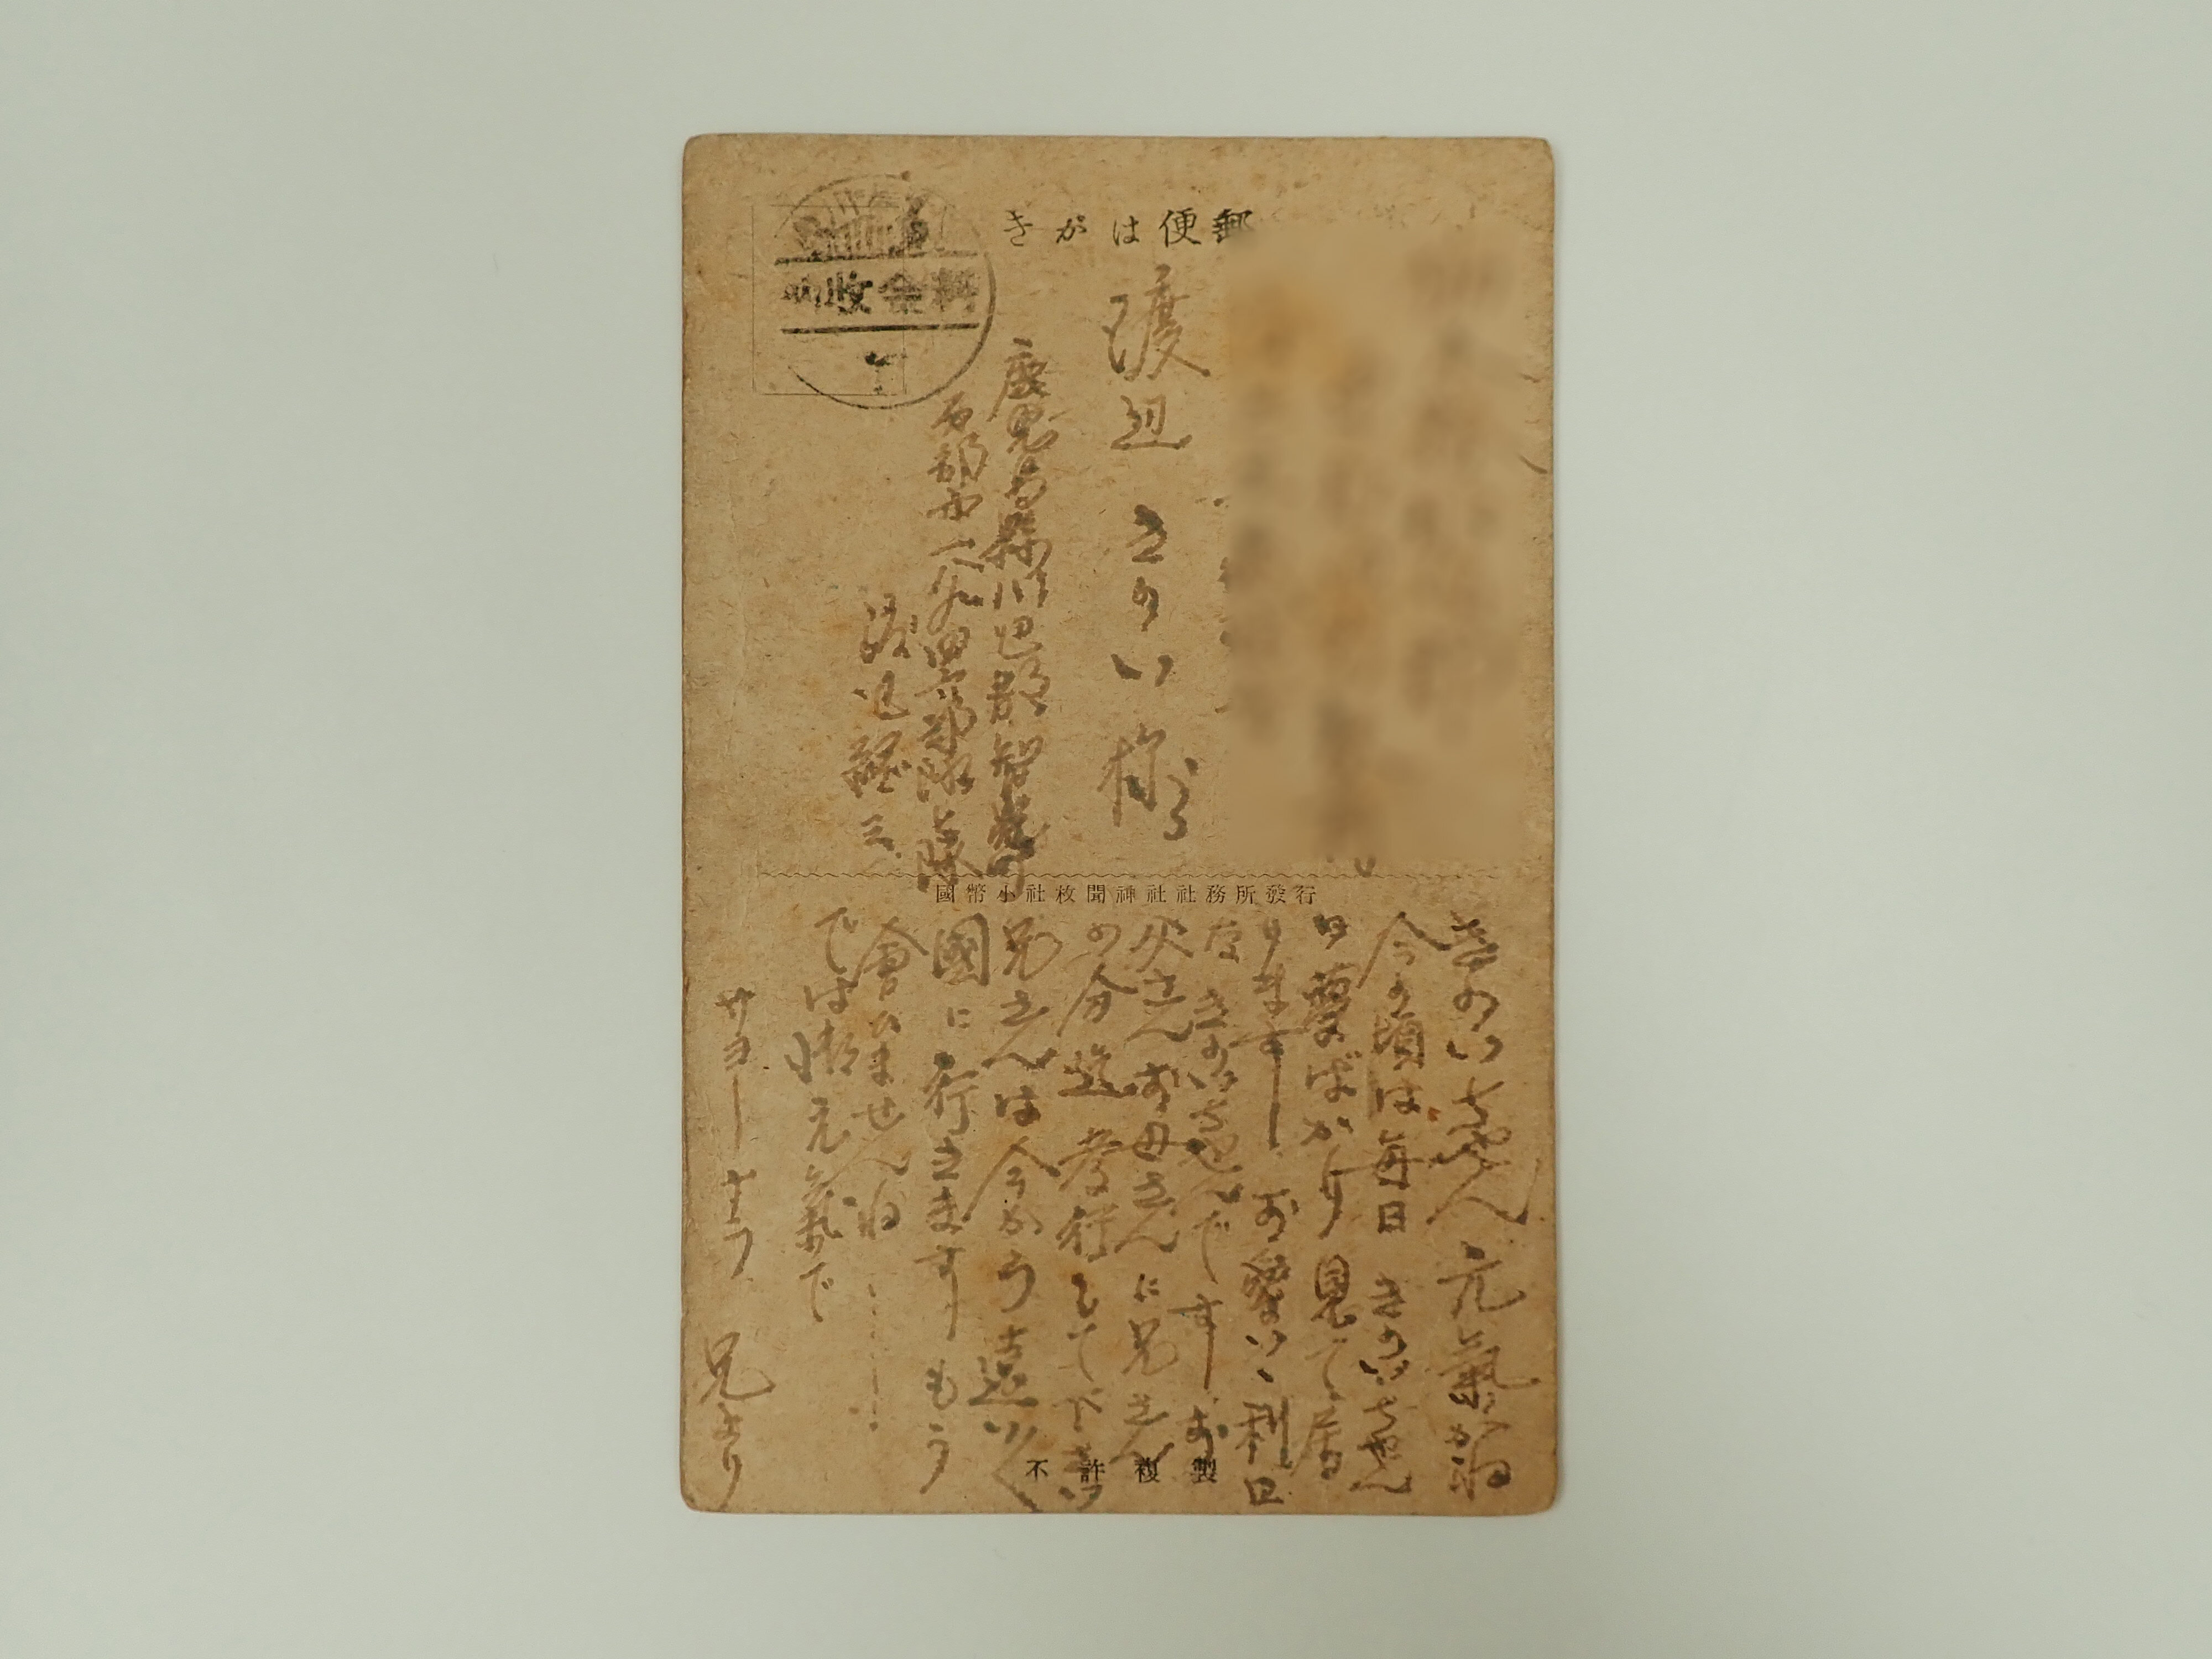 郵便はがき
料金收納
渡辺きのい様
鹿児島縣川辺郡知覧町
渡辺 三
國幣小社枚聞神社社務所發行
きのいちゃん元氣かね
今の頃は毎日きのいちゃん
の夢ばかり見て居
ります お愛い利口
なきのいちゃんです お
父さんお母さんに兄さん
の分迄孝行して下さい
兄さんは今から遠い
國に行きます もう
會ひませんね……
では御元氣で
サヨーナラ 兄より
不許複製